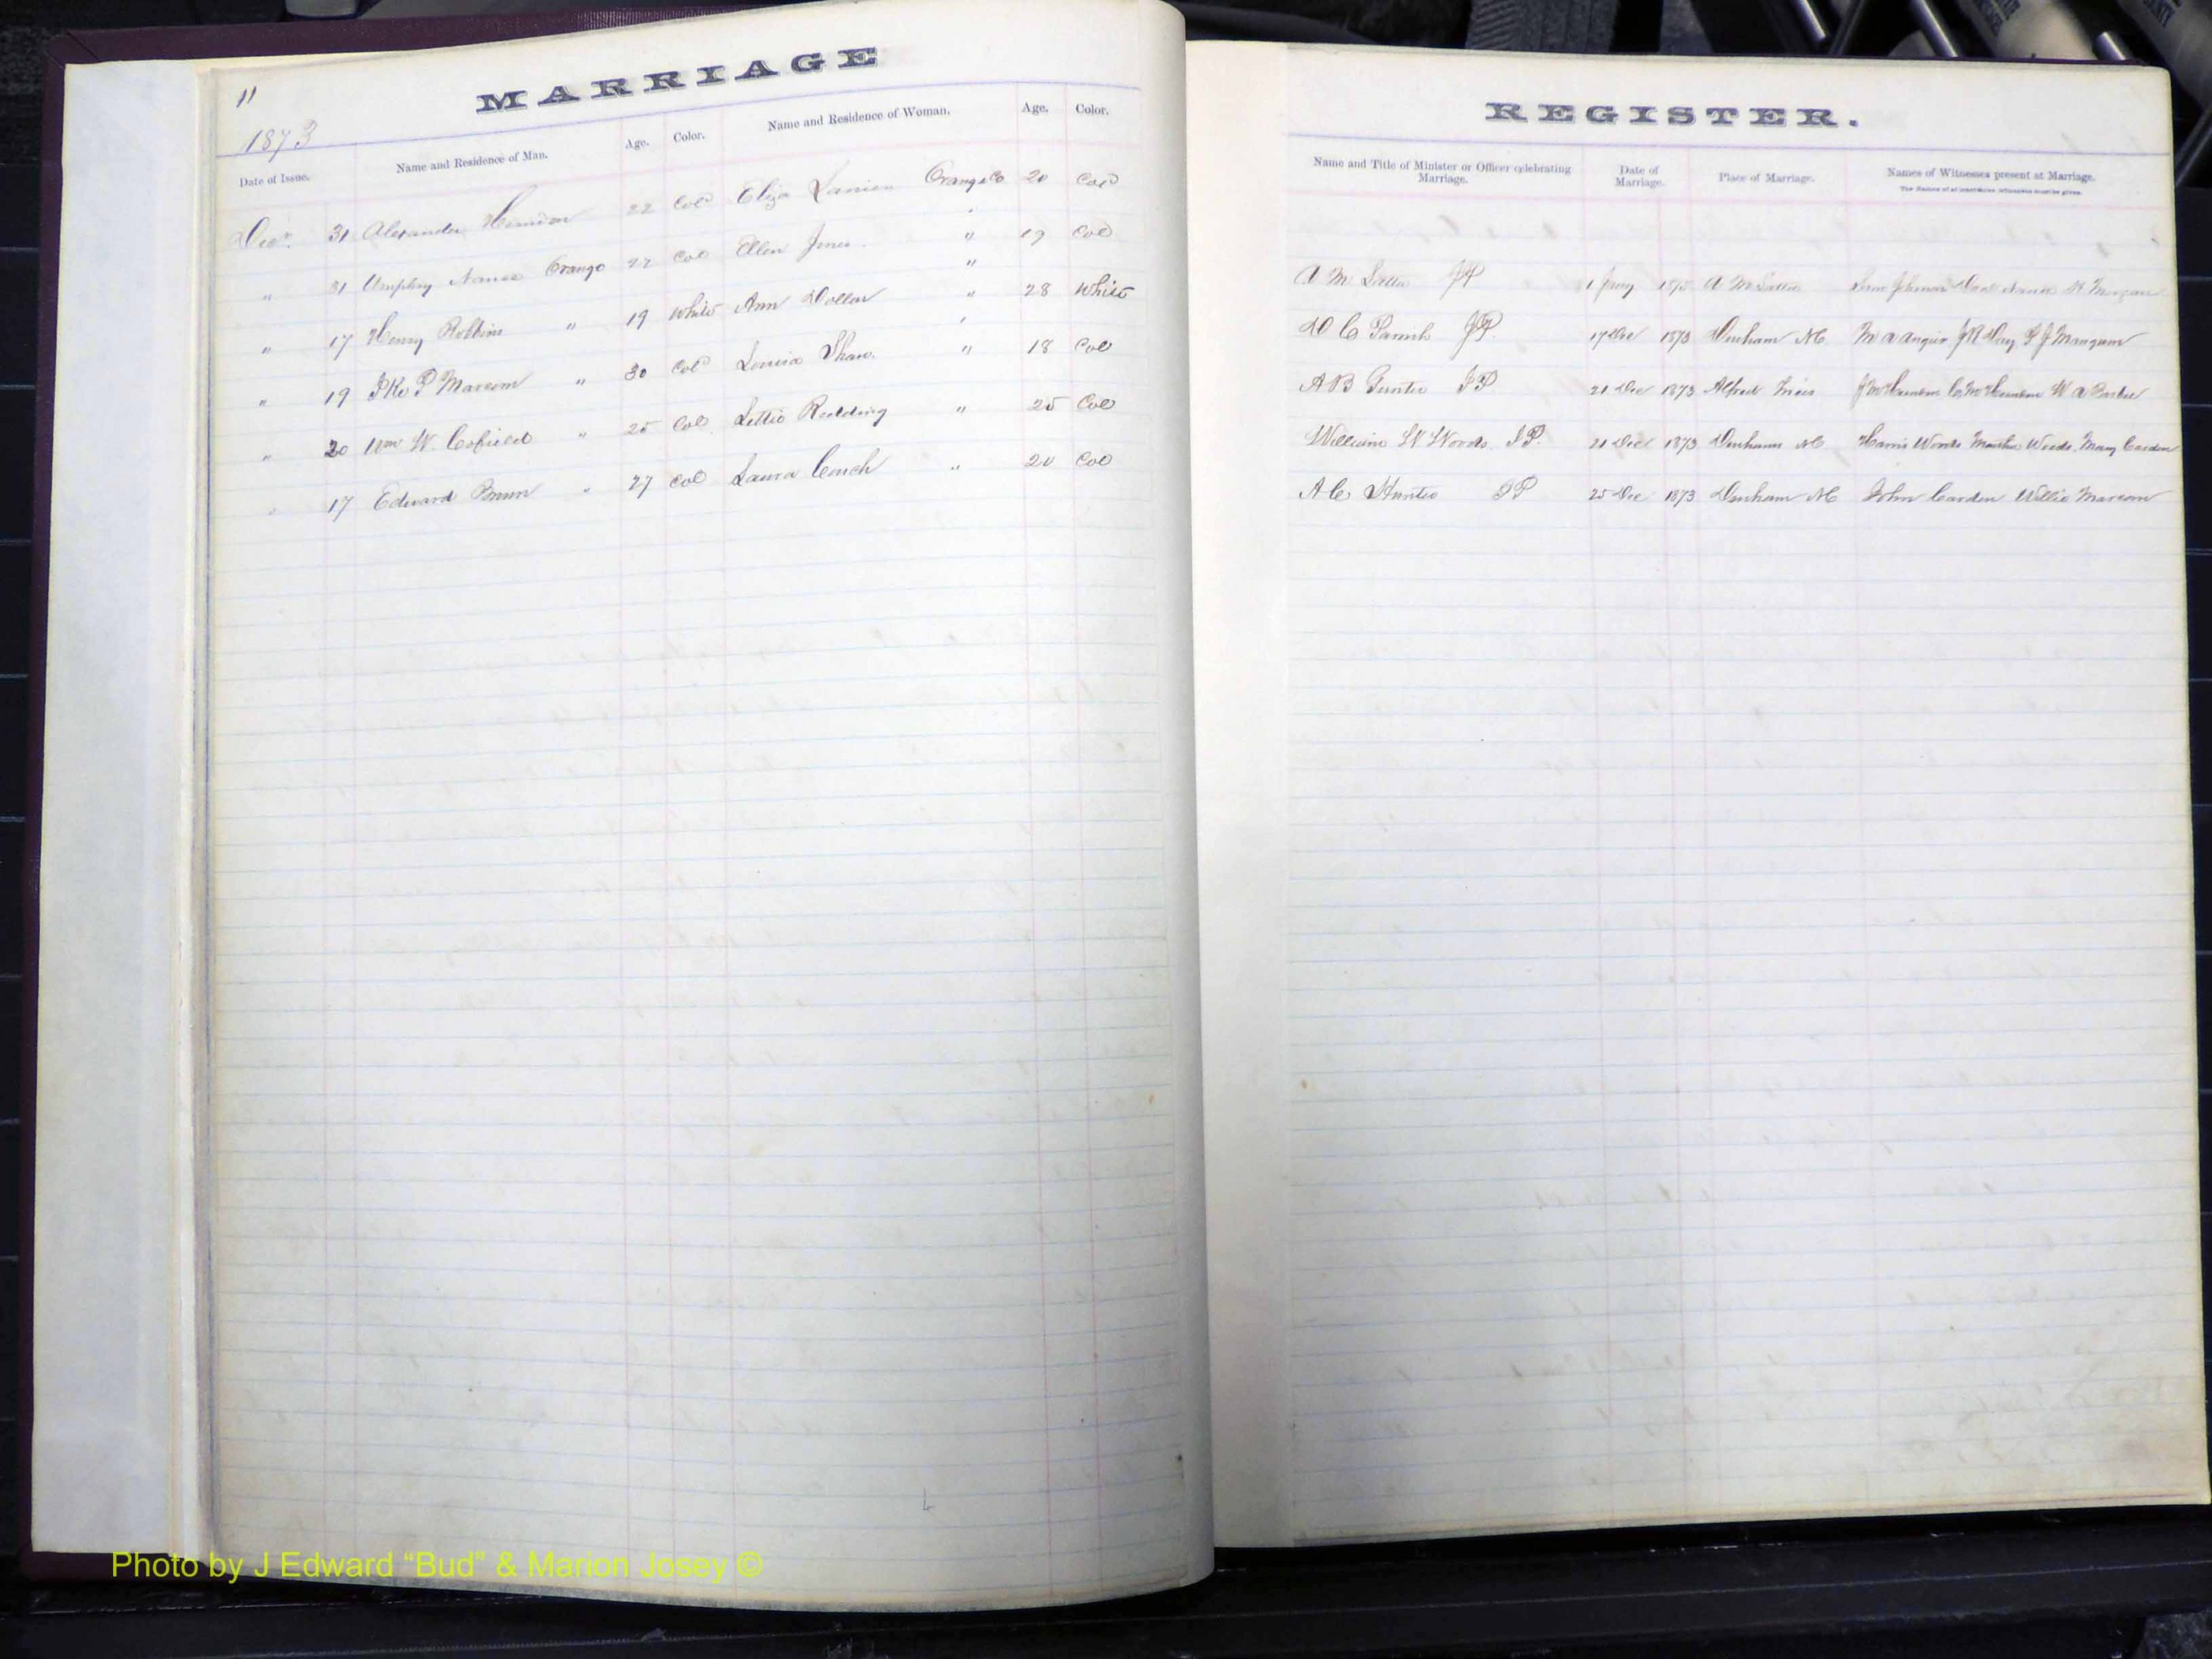 MARRIAGE
11
1873
Date of Issue. Name and Residence of Man. Age. Color. Name and Residence of Woman. Age. Color.
Decr. 31 Alexander Herndon 22 Cold Eliza Orange Co 20 Cold
" 31 Umphry Nance Orange 22 Col Ellen Jones " 19 Col
" 17 Henry Robbins " 19 White Ann Dollar " 28 White
" 19 P Marcom " 30 Col Louisa Shaw " 18 Col
" 20 Wm W. Cofield " 25 Col Lettie Redding " 25 Col
" 17 Edward " 27 Col Laura Couch " 20 Col
REGISTER.
Name and Title of Minister or Officer celebrating Marriage. Date of Marriage. Place of Marriage. Names of Witnesses present at Marriage.
The Names of at least three witnesses must be given.
A M JP 1 Jany A M
D C Parrish JP. 17 Dec 1873 Durham NC M A Angier J R Day, F J Mangum
A B Gunter JP 21 Dec 1873 Alfred W A Barbee
William W Woods J.P. 21 Dec 1873 Durham NC Harris Woods Martha Woods, Mary Carden
A C Hunter JP 25 Dec 1873 Durham NC John Carden Willie Marcom
Photo by J Edward “Bud” & Marion Josey ©